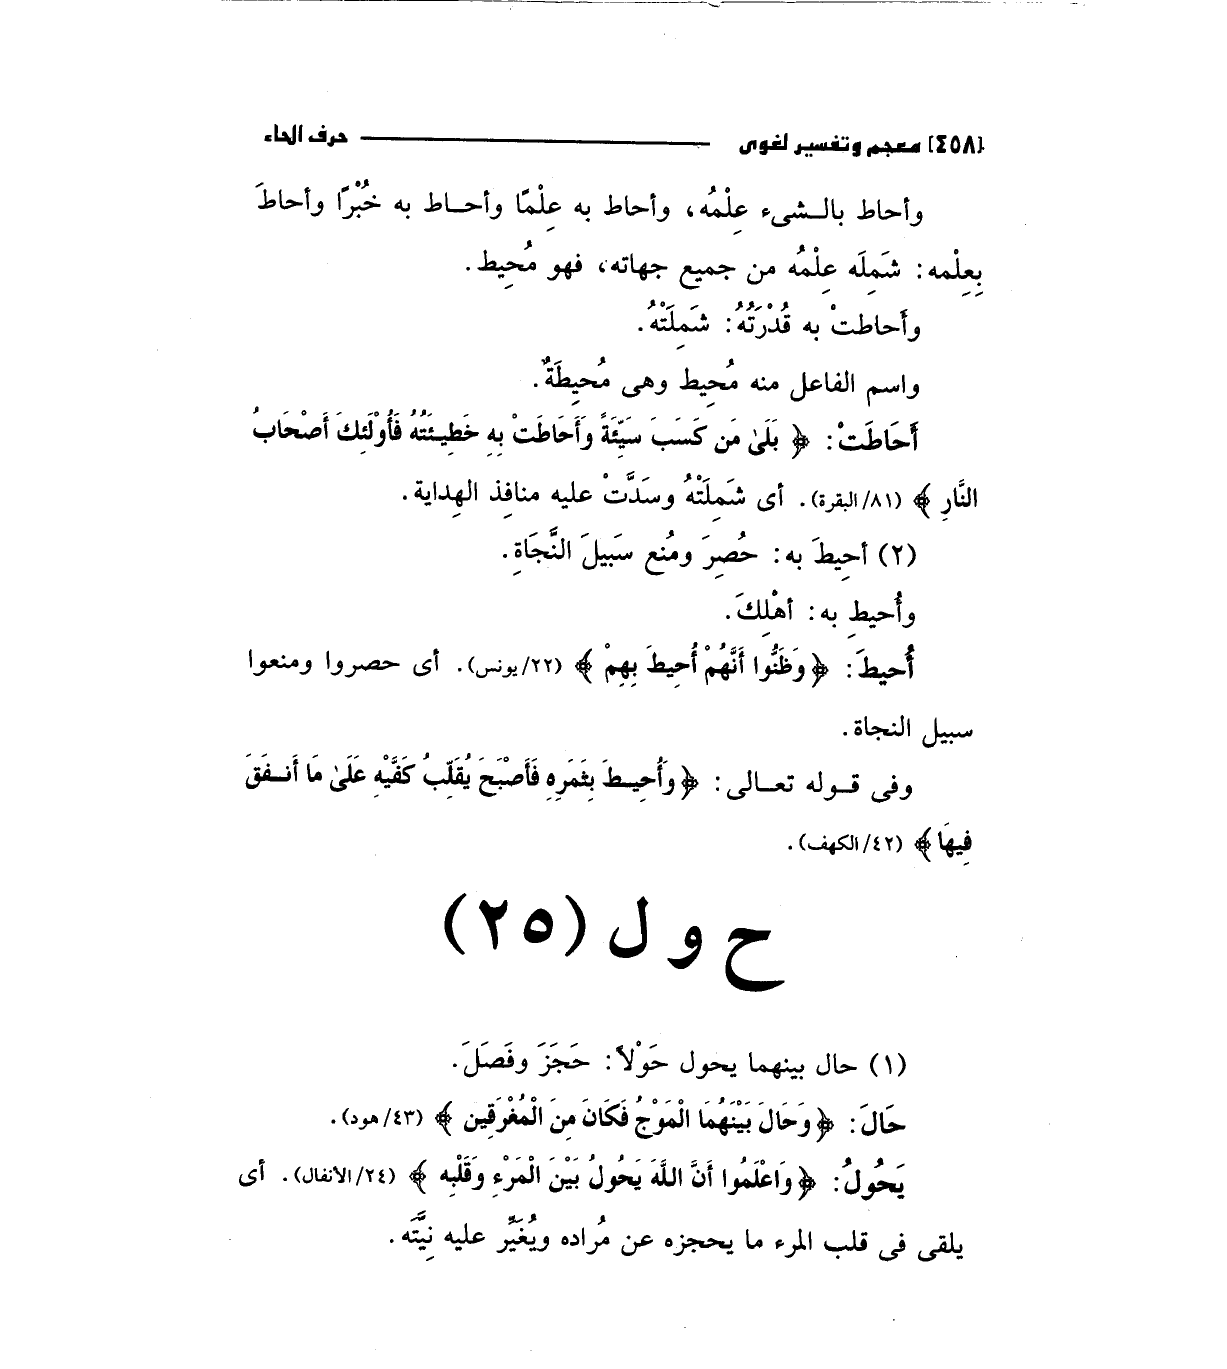 [٤٥٨] معجم وتفسير لغوى ــــــ حرف الحاء
وأحاط بالـشىء عِلْمُه، وأحاط به عِلْمًا وأحـاط به خُبْرًا وأحاطَ
بِعِلْمه: شَمِلَه عِلْمُه من جميع جهاته، فهو مُحِيط.
وأَحاطتْ به قُدْرَتُهُ: شَمِلَتْهُ.
واسم الفاعل منه مُحِيط وهى مُحيطَةٌ.
أَحَاطَتْ: ﴿ بَلَىٰ مَن كَسَبَ سَيِّئَةً وَأَحَاطَتْ بِهِ خَطِيـئَتُهُ فَأُوْلَئِكَ أَصْحَابُ
النَّارِ ﴾ (٨١/البقرة). أى شَمِلَتْهُ وسَدَّتْ عليه منافِذ الهِداية.
(٢) أحِيطَ به: حُصِرَ ومُنع سَبيلَ النَّجَاةِ.
وأُحيطِ به: أهْلِكَ.
أُحيطَ: ﴿وَظَنُّوا أَنَّهُمْ أُحِيطَ بِهِمْ ﴾ (٢٢/يونس). أى حصروا ومنعوا
سبيل النجاة.
وفى قـوله تعـالى: ﴿وَأُحِيـطَ بِثَمَرِهِ فَأَصْبَحَ يُقَلِّبُ كَفَّيْهِ عَلَىٰ مَا أَنـفَقَ
فِيهَا﴾ (٤٢/الكهف).
ح و ل (٢٥)
(١) حال بينهما يحول حَوْلاً: حَجَزَ وفَصَلَ.
حَالَ: ﴿وَحَالَ بَيْنَهُمَا الْمَوْجُ فَكَانَ مِنَ الْمُغْرَقِين ﴾ (٤٣/هود).
يَحُولُ: ﴿وَاعْلَمُوا أَنَّ اللَّهَ يَحُولُ بَيْنَ الْمَرْءِ وَقَلْبِه ﴾ (٢٤/الأنفال). أى
يلقى فى قلب المرء ما يحجزه عن مُراده ويُغَيِّر عليه نِيَّتَه.